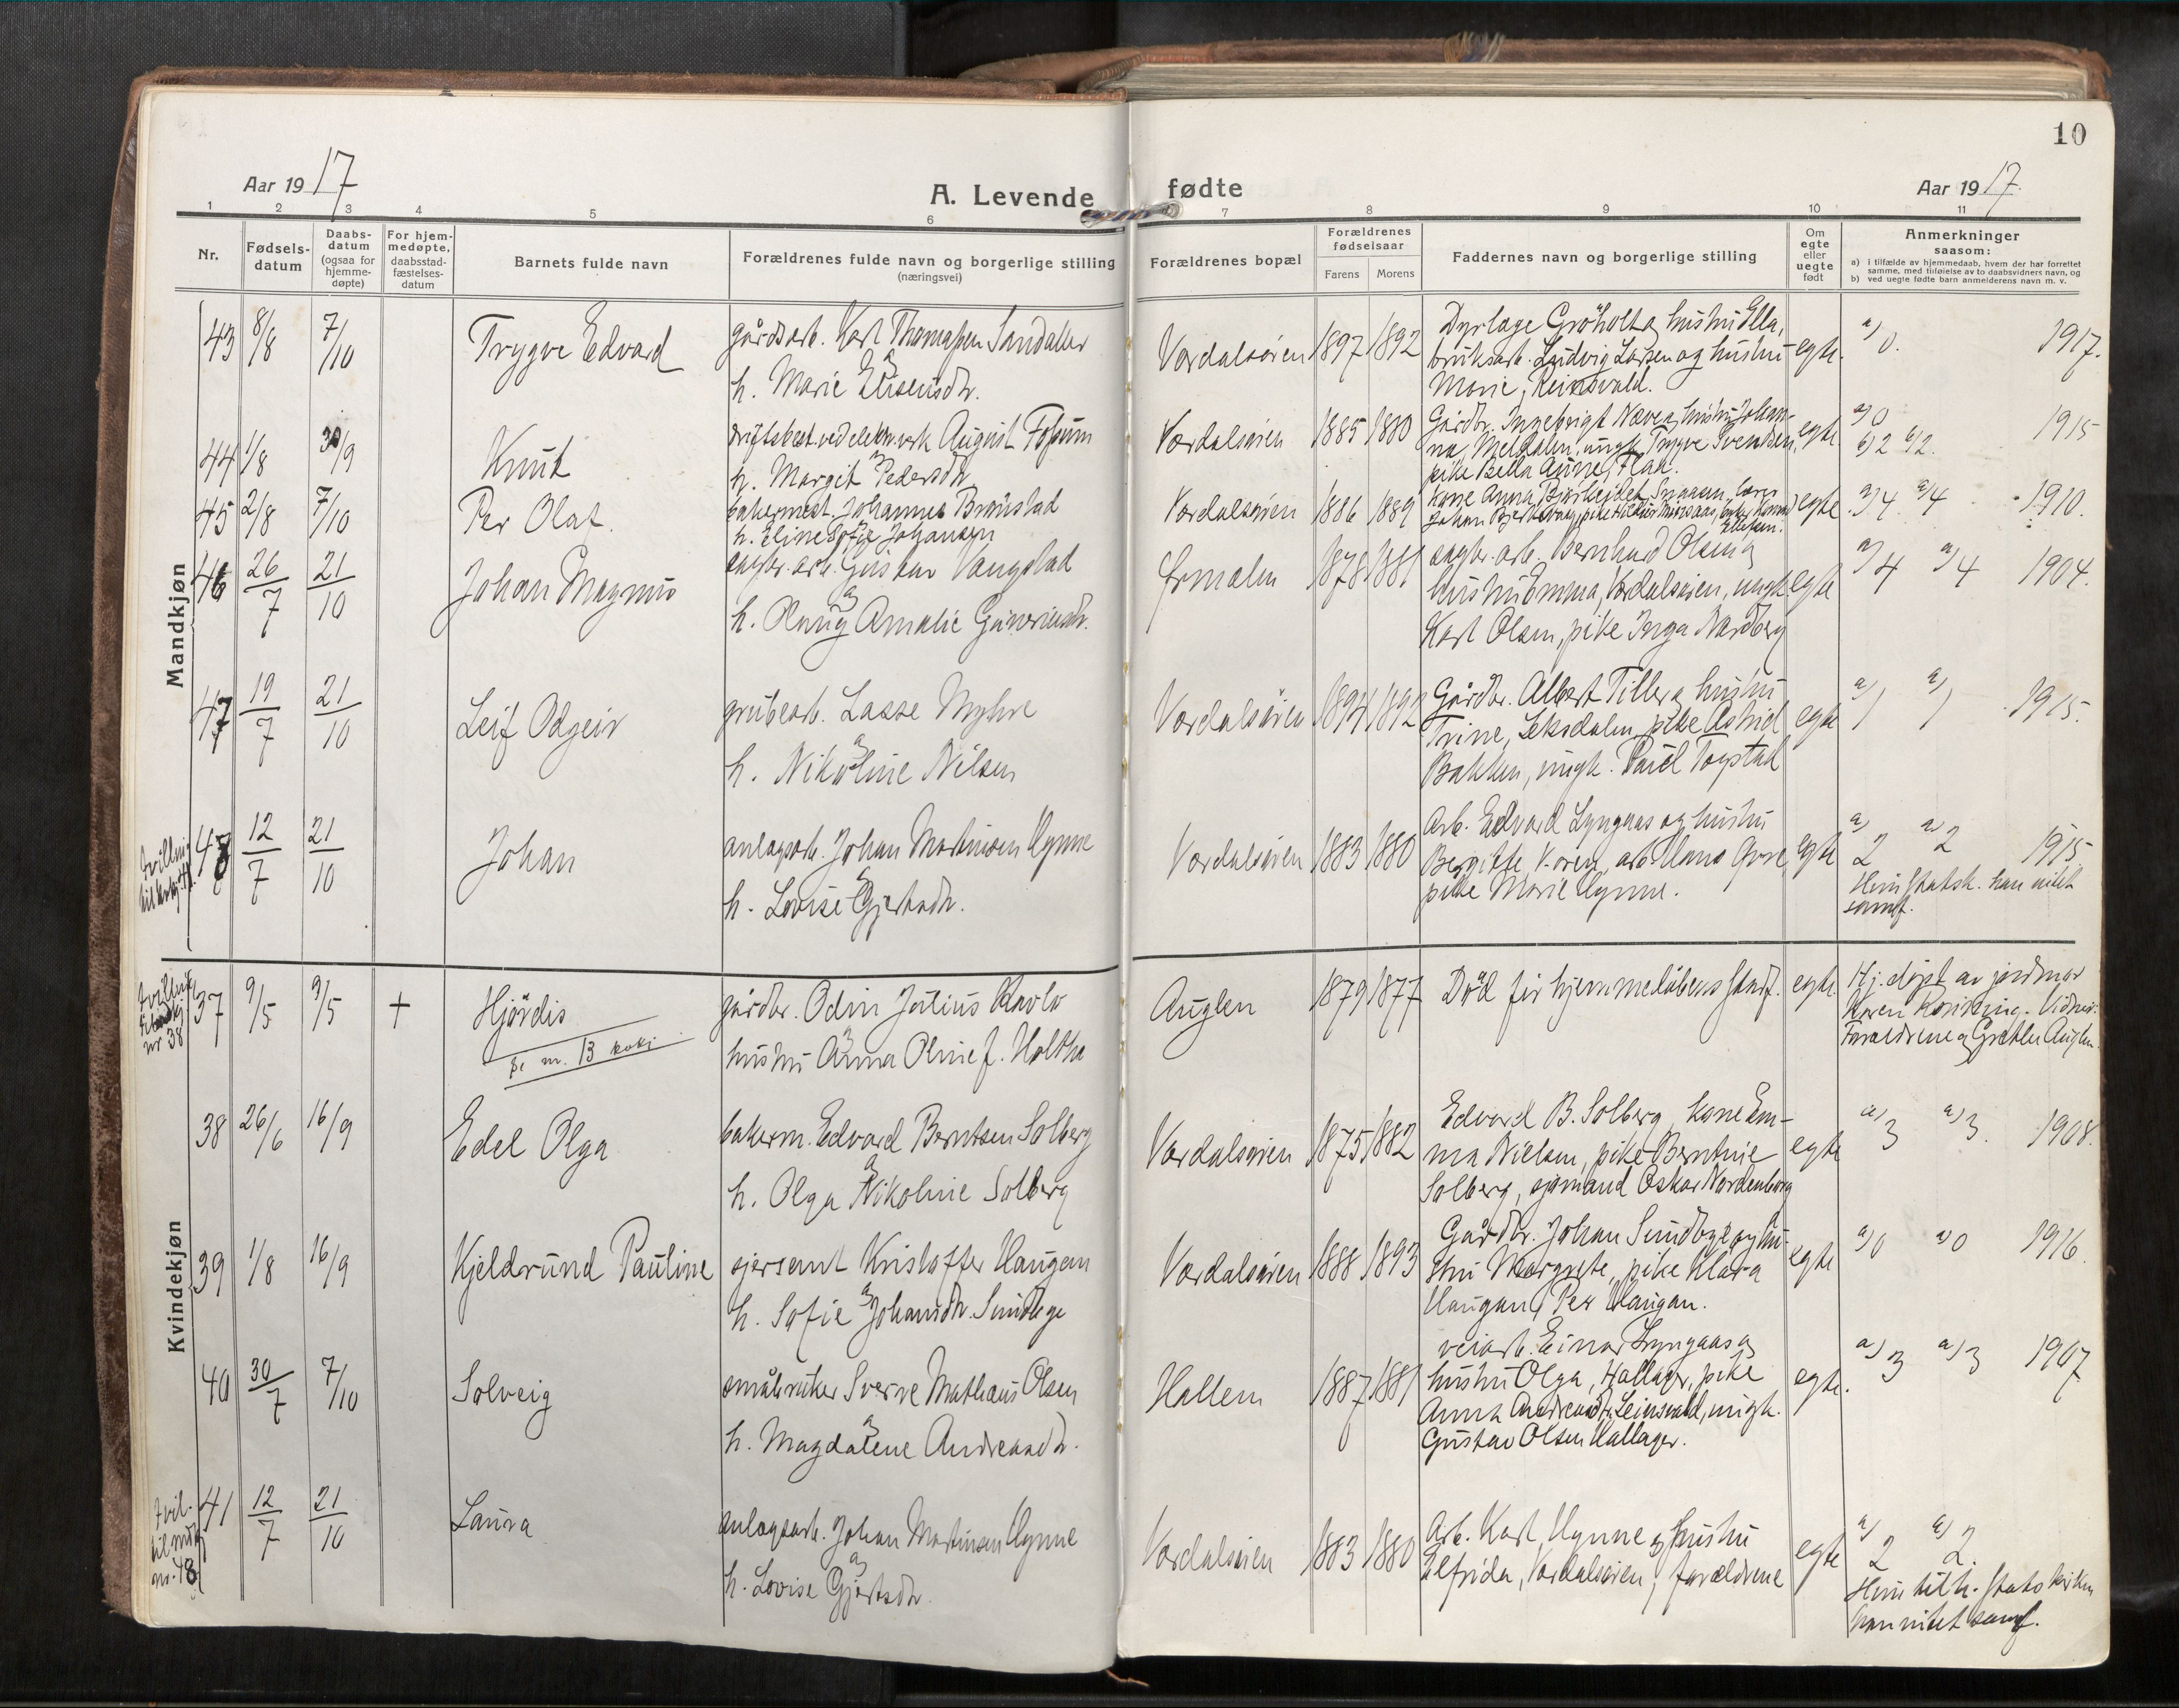 10
Aar 1917
A. Levende fødte
Aar 1917.
1 2 3 4 5 6 7 8 9 10 11
Nr.
Fødsels-
datum
Daabs-
datum
(ogsaa for
hjemme-
døpte)
For hjem-
medøpte,
daabsstad-
fæstelses-
datum
Barnets fulde navn
Forældrenes fulde navn og borgerlige stilling
(næringsvei)
Forældrenes bopæl
Forældrenes
fødselsaar
Farens Morens
Faddernes navn og borgerlige stilling
Om
egte
eller
uegte
født
Anmerkninger
saasom:
a) i tilfælde av hjemmedaab, hvem der har forrettet
samme, med tilføielse av to daabsvidners navn, og
b) ved uegte fødte barn anmelderens navn m. v.
Mandkjøn
43 8/8 7/10 Trygve Edvard
gårdsarb. Karl Thomassen Sandaker
h. Marie Elisensdtr.
Værdalsøren 1897 1892
hushu Ella,
bruksarb. Ludvig Larsen og hushu
Marie, Reinsvald.
egte. a) 0. 1917.
44 1/8 30/9 Knut
driftsbest. ved elektr. verk August Fossum
h. Margit Pedersdtr
Værdalsøren 1885 1880
Gårdbr. Ingebrigt Næve og hushu Johan-
na, ungk. Trygve Svendsen,
pike Bella Aune, Flaa.
egte a) 0 b) 2 b) 2. 1915
45 2/8 7/10 Per Olaf.
bakermest. Johannes Brønstad
h. Eline Sofie Johansen
Værdalsøren 1886 1889
kone Anna
Johan
Ellefsen.
egte a) 4. a) 4 1910.
46 26/7 21/10 Johan Magnus
sagbr. arb. Gustav Vangstad
h. Olaug Amalie
Ørmelen 1878 1881
sagbr. arb. Bernhard Olsen og
hushu Emma, Værdalsøren, ungk.
Karl Olsen, pike Inga Nordberg
egte a) 4 a) 4 1904.
47 19/7 21/10 Leif Odgeir
grubearb. Lasse Myhre
og
h. Nikoline Nilsen
Værdalsøren 1894 1892
Gårdbr. Albert Tiller og hushu
Trine, Leksdalen, pike Astrid
Bakken, ungk. Paul Togstad
egte a) 1 a) 1 1915.
tvilling
48 12/7 21/10 Johan
anlægsarb. Johan Martinsen Hynne
og
h. Lovise Gjertsdtr.
Værdalsøren 1883 1880
Arb. Edvard Lyngaas og hushu
Bergitte, V.øren, arb. Hans
pike Marie Hynne.
egte a) 2 a) 2 1915.
Hun statsk. han utlét
samf.
Kvindekjøn
tvilling
nr 38
37 9/5 9/5 + Hjørdis
Se m. B bok
gårdbr. Odin Julius Karlo
og
hushu Anna Oline f. Holthe
Auglen 1879 1877 Død før hjemmedåbens stadf. egte.
Hj. døpt av jordmor
Karen Vidner:
Forældrene og Grethe Auglen.
38 26/6 16/9 Edel Olga
bakerm. Edvard Berntsen Solberg
og
h. Olga Nikoline Solberg
Værdalsøren 1875 1882
Edvard B. Solberg, kone Em-
ma Nielsen, pike Berntine
Solberg, sjømand Oskar Nordenborg
egte a) 3 a) 3. 1908.
39 1/8 16/9 Kjeldrund Pauline
sjersant Kristoffer Haugan
og
h. Sofie Johansdtr. Sundbye
Værdalsøren 1888 1893
Gårdbr. Johan Sundbye og hu-
shu Margrete, pike Klara
Haugan, Per Haugan.
egte a) 0 a) 0 1916.
40 30/7 7/10 Solveig
småbruker Sverre Mathæus Olsen
og
h. Magdalene Andreasdtr.
Hallem 1887 1881
veiarb. Einar Lyngaas og
hushu Olga, Hallager, pike
Anna Andreasdtr. Leinsvald, ungk.
Gustav Olsen Hallager.
egte. a) 3 a) 3 1907
tvil-
nr. 48
41 12/7 21/10 Laura
anlægsarb. Johan Martinsen Hynne
og
h. Lovise Gjertsdtr
Værdalsøren 1883 1880
Arb. Karl Hynne og hushu
Elfrida, Værdalsøren, forældrene
egte a) 2 a) 2.
Hun tilh. statskirken
han samf.